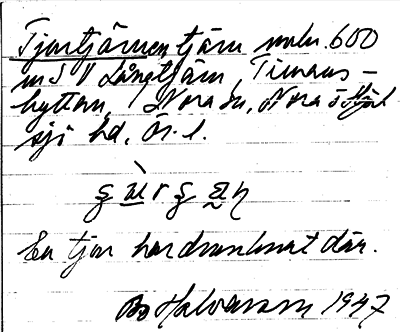 Tjurtjärnen tjärn omkr. 600
m S V Långtjärn, Timans-
hyttan, Nora sn, Nora o Hjul
sjö hd, Ör. l.
En tjur har drunknat där.
Bo Halvarsson 1947